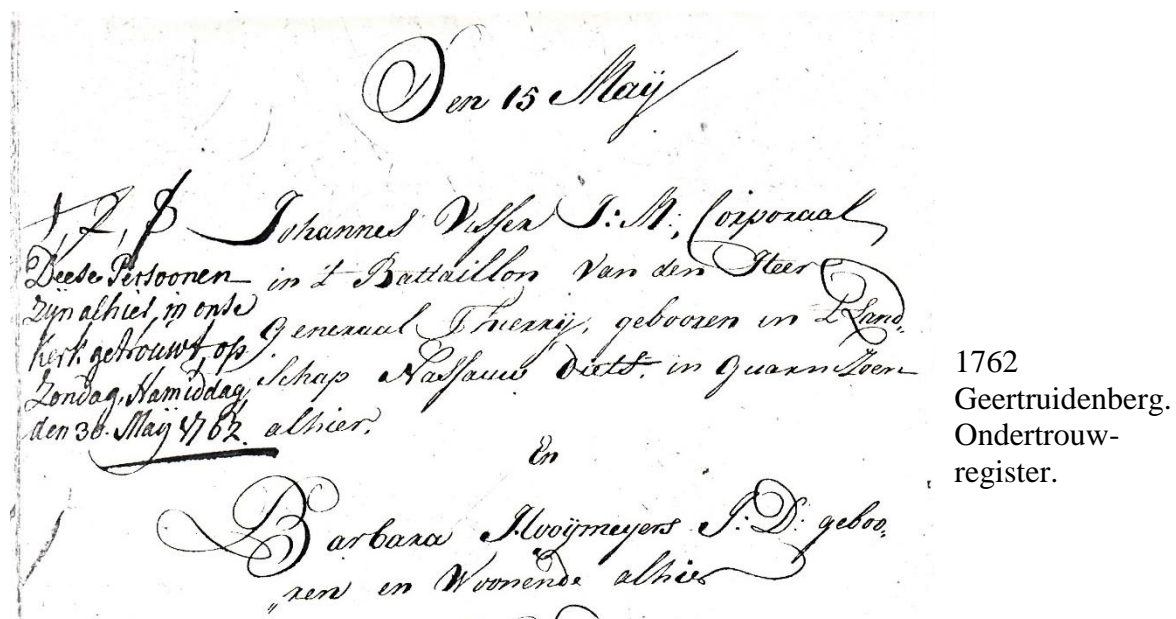 Den 15 Maij
1, 2, 3
Deese Persoonen
zijn alhier, in onse
Kerk getrouwt, op
Zondag, Namiddag,
den 30. Maij 1762.
Johannes Visser J: M:, Corporaal
in 't Battaillon van den Heer
Generaal Thierrij, gebooren in 't Land,
schap Nassauw Dietz. in Guarnizoen
alhier.
En
Barbara Hooijmeyers J: D: geboo,
„ren en Woonende alhier
1762
Geertruidenberg.
Ondertrouw-
register.